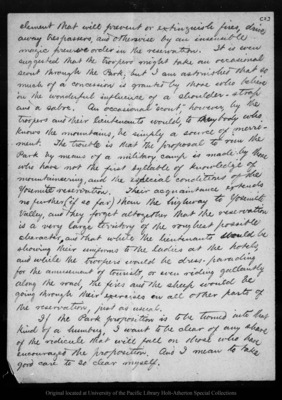 element that will prevent or extinguish fires, drive
away trespassers, and otherwise by an insensible
magic preserve order in the reservation. It is even
suggested that the troopers might take an occasional
scout through the Park, but I am astonished that so
much of a concession is granted by those who believe
in the wonderful influence of a shoulder-strap
and a sabre. An "occasional scout," however, by the
troopers and their lieutenants would, to anybody who
knows the mountains, be simply a source of merri-
ment. The trouble is that the proposal to run the
Park by means of a military camp is made by those
who have not the first syllable of knowledge of
mountaineering, and the especial conditions of the
Yosemite reservation. Their acquaintance extends
no further (if so far) than the highway to Yosemite
Valley, and they forget altogether that the reservation
is a very large territory of the roughest possible
character, and that while the lieutenant would be
showing their uniforms to the ladies at the hotels,
and while the troopers would be dress-parading
for the amusement of tourists, or even riding gallantly
along the road, the fires and the sheep would be
going through their exercises on all other parts of
the reservation, just as usual.
If the Park proposition is to be turned into that
kind of a humbug, I want to be clear of any share
of the ridicule that will fall on those who have
encouraged the proposition. And I mean to take
good care to so clear myself.
Original located at University of the Pacific Library Holt-Atherton Special Collections